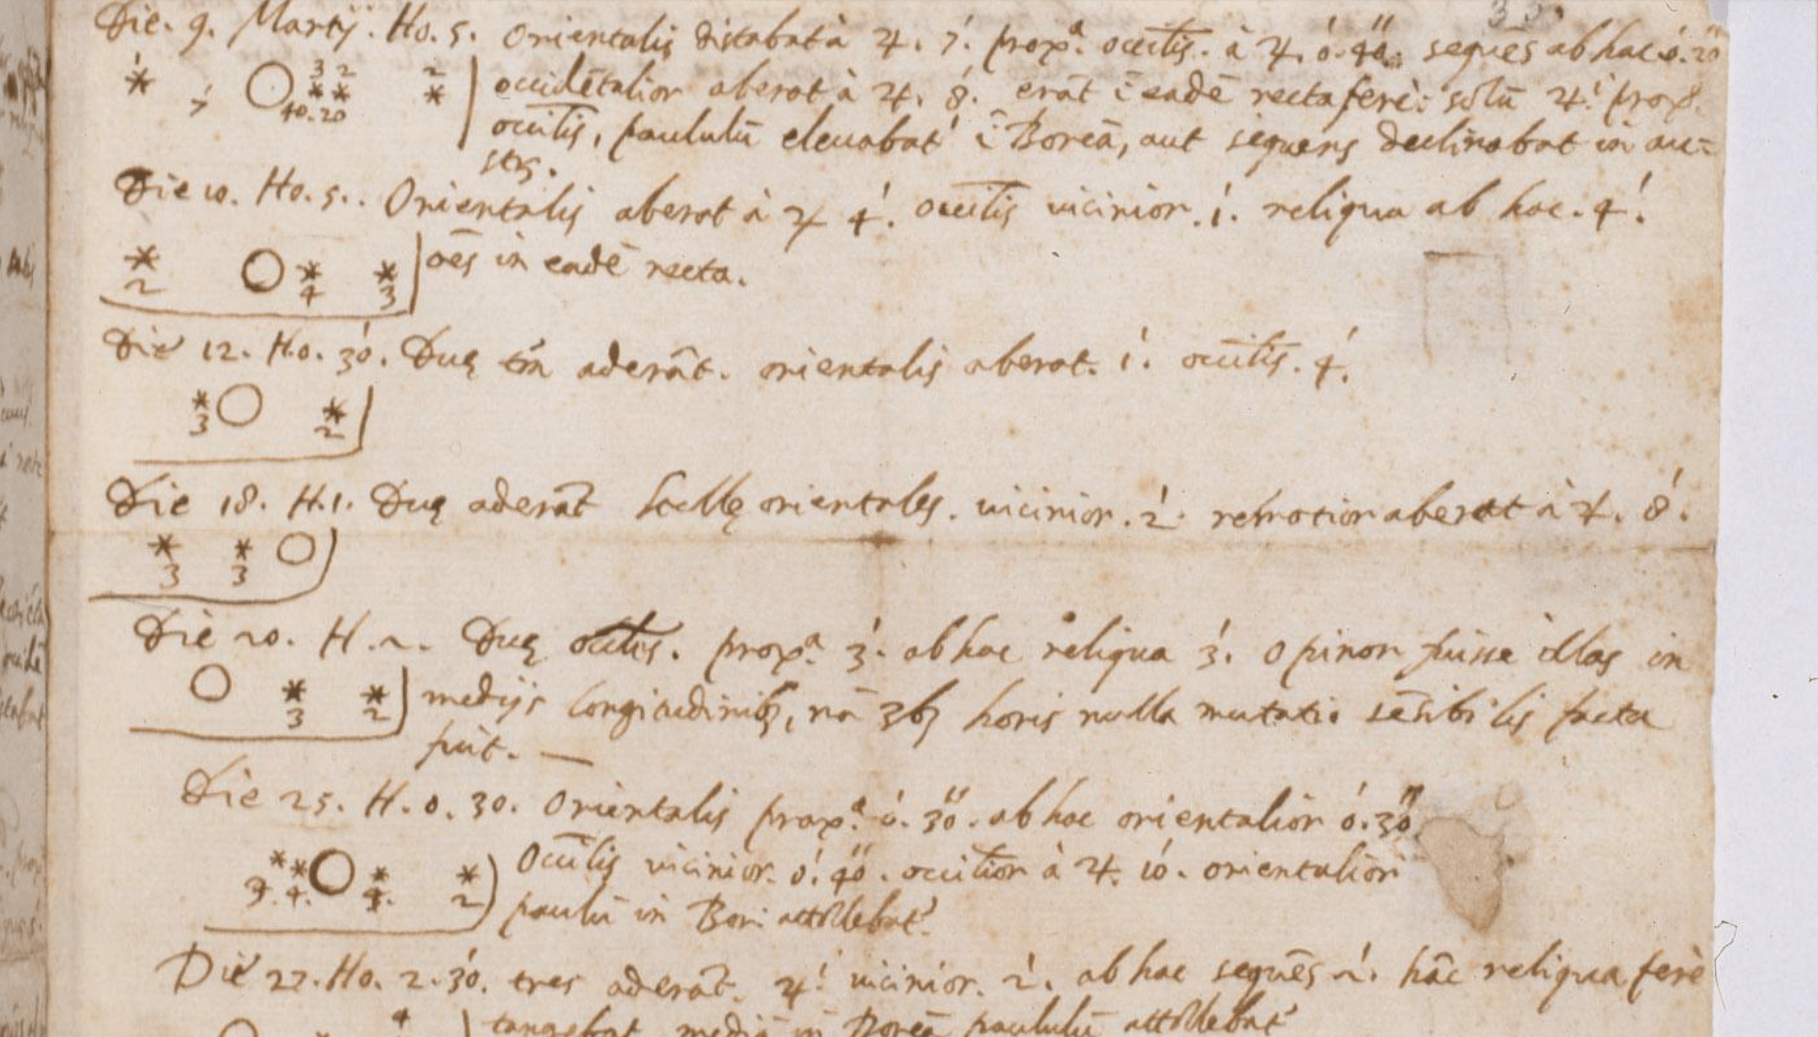 Die. 9. Martij. Ho. 5. Orientalis distabat à ♃. 7'. proxa. occitis. à ♃. 0'. 40''. sequēs ab hac 0'. 20''
* 7 ○ ** *
3 2 2
40. 20
occidētalior aberat à ♃. 8'. erāt ī eadē recta ferè: solū ♃i prox.
occitis, paululū eleuabat' ī Boreā, aut sequens declinabat in au=
str.
Die 10. Ho. 5.. Orientalis aberat à ♃ 4'. occitis uicinior. 1'. reliqua ab hac. 4'.
* ○ * *
2 4 3
oēs in eadē recta.
Die 12. Ho. 30'. Duę tn̄ aderāt. orientalis aberat. 1'. occitis. 4'.
* ○ *
3 2
Die 18. H. 1. Duę aderāt stellę orientales. uicinior. 2'. remotior aberat à ♃. 8'.
* * ○
3 3
Die 20. H. 2. Duę occitis. proxa. 3'. ab hac reliqua 3'. Opinor fuisse illas in
○ * *
3 2
medijs longitudinibꝫ, nā 3bꝫ horis nulla mutatio sēsibilis facta
fuit. —
Die 25. H. 0. 30. Orientalis proxa. 0'. 30''. ab hac orientalior 0'. 30''.
** ○ * *
3. 4. 4. 2
Occitis uicinior. 0'. 40''. occitior à ♃. 10'. orientalior
paulū in Bor: attollebat'.
Die 27. Ho. 2. 30'. tres aderāt. ♃i uicinior. 2'. ab hac sequēs 2'. hāc reliqua ferè
tangebat mediā in Boreā paululū attollebat'